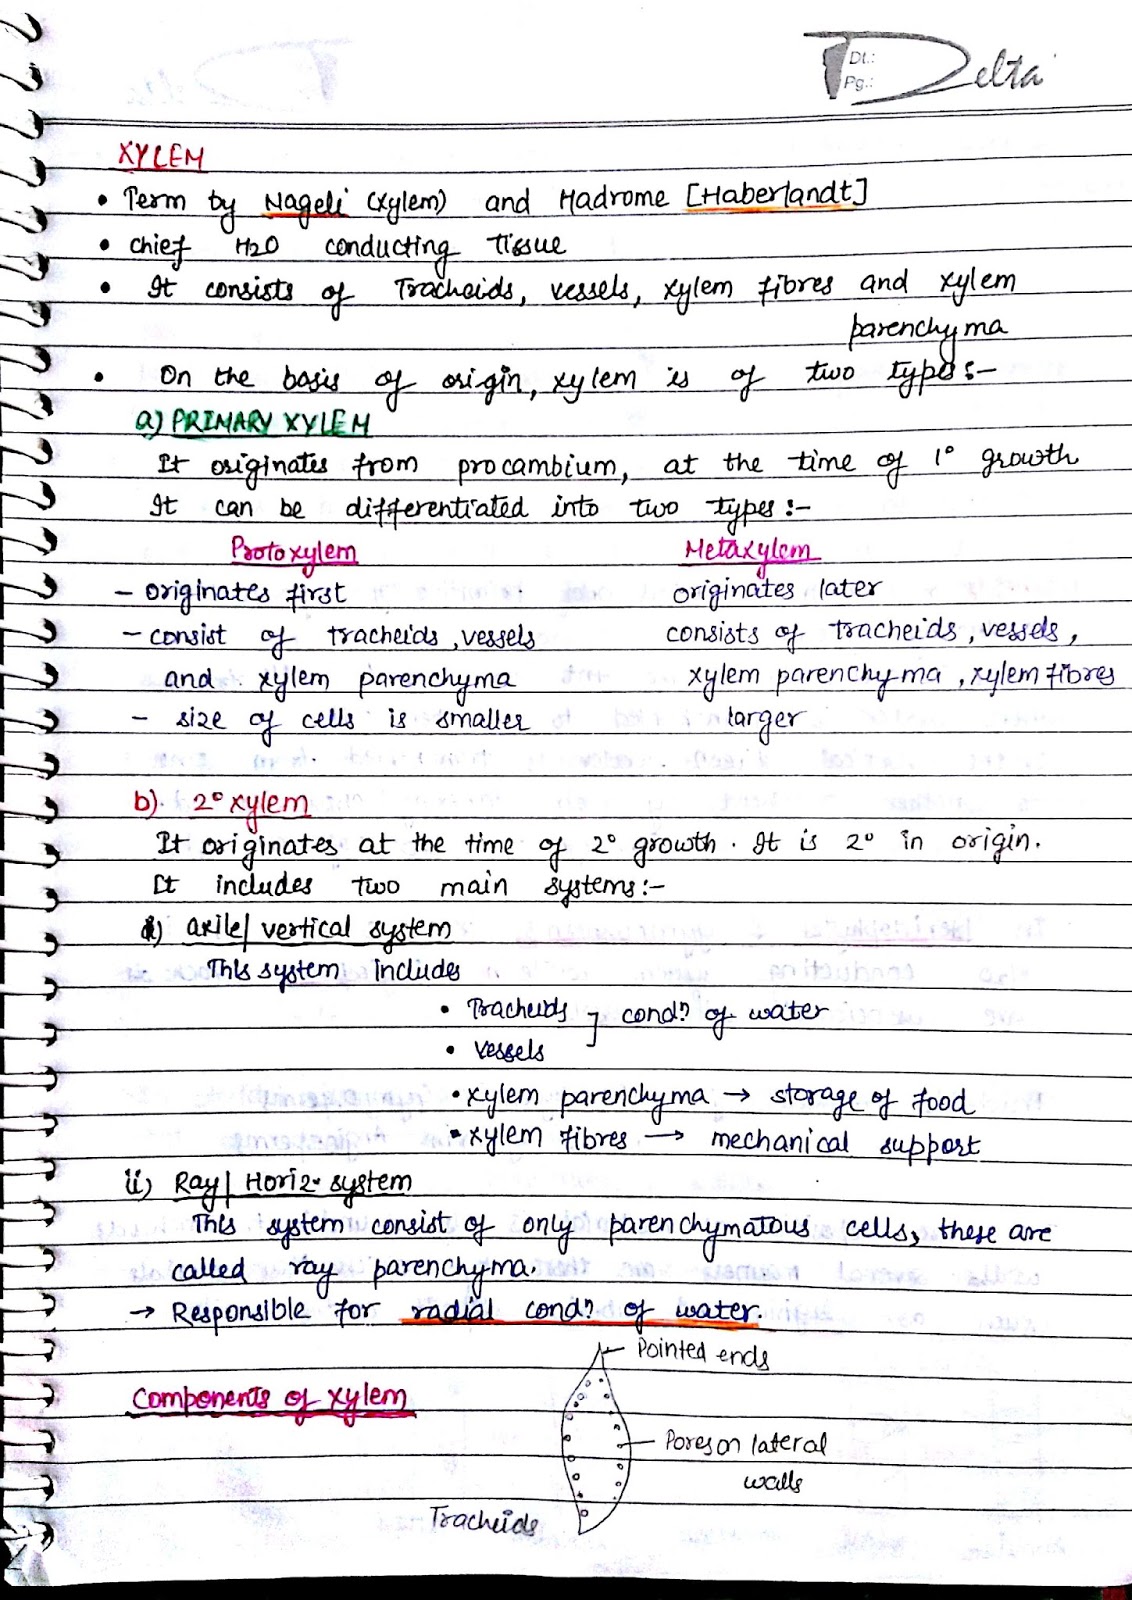 Delta
Dt.:
Pg.:
XYLEM
• Term by Nageli (xylem) and Hadrome [Haberlandt]
• chief H2O conducting tissue
• It consists of Tracheids, vessels, xylem fibres and xylem
parenchyma
• On the basis of origin, xylem is of two types:-
a) PRIMARY XYLEM
It originates from procambium, at the time of 1° growth
It can be differentiated into two types:-
Protoxylem Metaxylem
- originates first originates later
- consist of tracheids, vessels consists of tracheids, vessels,
and xylem parenchyma xylem parenchyma, xylem fibres
- size of cells is smaller larger
b). 2° xylem
It originates at the time of 2° growth. It is 2° in origin.
It includes two main systems:-
i) axile/vertical system
This system includes
• Tracheids ] condn of water
• vessels
• xylem parenchyma → storage of food
• xylem fibres → mechanical support
ii) Ray/Horiz. system
This system consist of only parenchymatous cells, these are
called ray parenchyma.
→ Responsible for radial condn of water.
Pointed ends
Components of xylem
Pores on lateral
walls
Tracheids